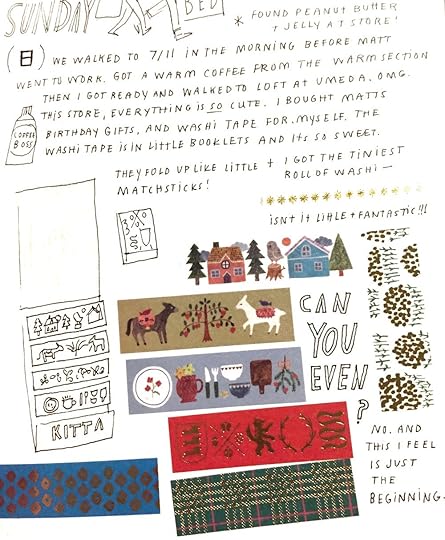 SUNDAY
BED
* FOUND PEANUT BUTTER
+ JELLY AT STORE!
(日) WE WALKED TO 7/11 IN THE MORNING BEFORE MATT
WENT TO WORK. GOT A WARM COFFEE FROM THE WARM SECTION
THEN I GOT READY AND WALKED TO LOFT AT UMEDA. OMG.
THIS STORE, EVERYTHING IS SO CUTE. I BOUGHT MATTS
BIRTHDAY GIFTS, AND WASHI TAPE FOR MYSELF. THE
WASHI TAPE IS IN LITTLE BOOKLETS AND ITS SO SWEET.
COFFEE
BOSS
THEY FOLD UP LIKE LITTLE +
MATCHSTICKS!
I GOT THE TINIEST
ROLL OF WASHI —
ISNT IT LITTLE + FANTASTIC!!!
CAN
YOU
EVEN
?
KITTA
NO. AND
THIS I FEEL
IS JUST
THE
BEGINNING.